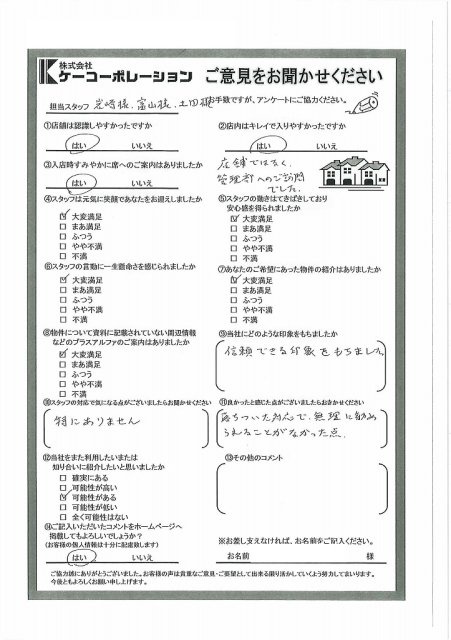 株式会社
ケーコーポレーション ご意見をお聞かせください
担当スタッフ 岩崎様、富山様、土田様 お手数ですが、アンケートにご協力ください。
①店舗は認識しやすかったですか
はい いいえ
②店内はキレイで入りやすかったですか
はい いいえ
③入店時すみやかに席へのご案内はありましたか
はい いいえ
店舗ではなく、
管理部へのご訪問
でした。
④スタッフは元気に笑顔であなたをお迎えしましたか
☑ 大変満足
□ まあ満足
□ ふつう
□ やや不満
□ 不満
⑤スタッフの動きはてきぱきしており
安心感を得られましたか
☑ 大変満足
□ まあ満足
□ ふつう
□ やや不満
□ 不満
⑥スタッフの言動に一生懸命さを感じられましたか
☑ 大変満足
□ まあ満足
□ ふつう
□ やや不満
□ 不満
⑦あなたのご希望にあった物件の紹介はありましたか
☑ 大変満足
□ まあ満足
□ ふつう
□ やや不満
□ 不満
⑧物件について資料に記載されていない周辺情報
などのプラスアルファのご案内はありましたか
☑ 大変満足
□ まあ満足
□ ふつう
□ やや不満
□ 不満
⑨当社にどのような印象をもちましたか
信頼できる印象をもちました
⑩スタッフの対応で気になる点がございましたらお聞かせください
特にありません
⑪良かったと感じた点がございましたらお書きください
落ちついた対応で、無理に勧め
られることがなかった点。
⑫当社をまた利用したいまたは
知り合いに紹介したいと思いましたか
□ 確実にある
□ 可能性が高い
☑ 可能性がある
□ 可能性が低い
□ 全く可能性はない
⑬その他のコメント
⑭ご記入いただいたコメントをホームページへ
掲載してもよろしいでしょうか?
(お客様の個人情報は十分に配慮致します)
はい いいえ
※お差し支えなければ、お名前をご記入ください。
お名前 様
ご協力誠にありがとうございました。お客様の声は貴重なご意見・ご要望として出来る限り活かしていくよう努力してまいります。
今後ともよろしくお願い申し上げます。